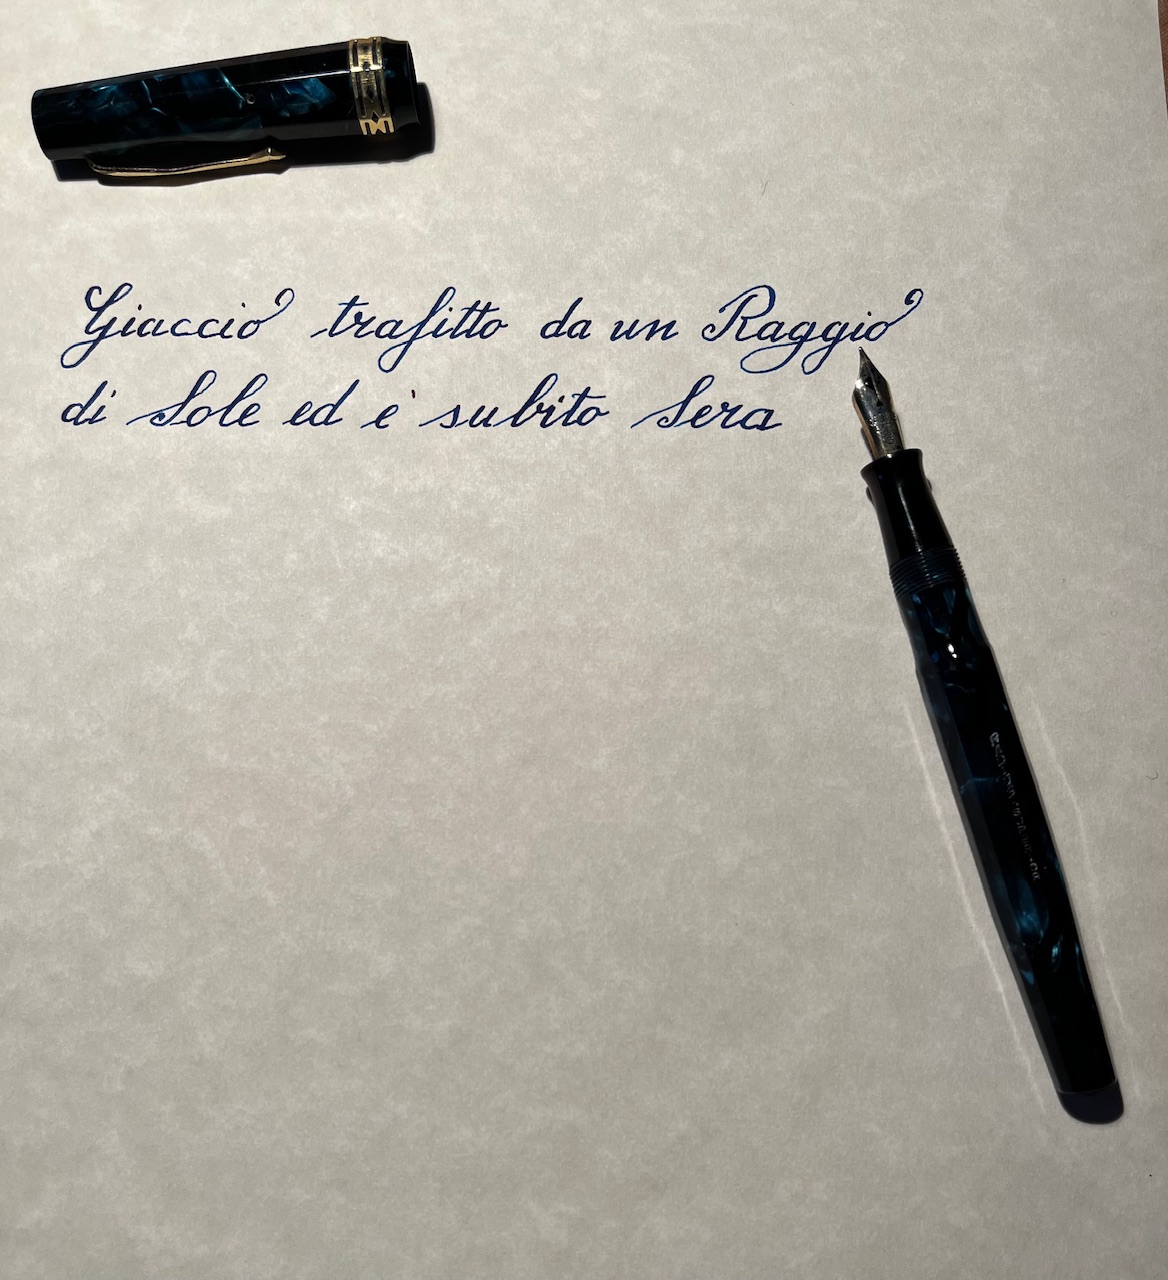 Giaccio trafitto da un Raggio
di Sole ed e' subito Sera